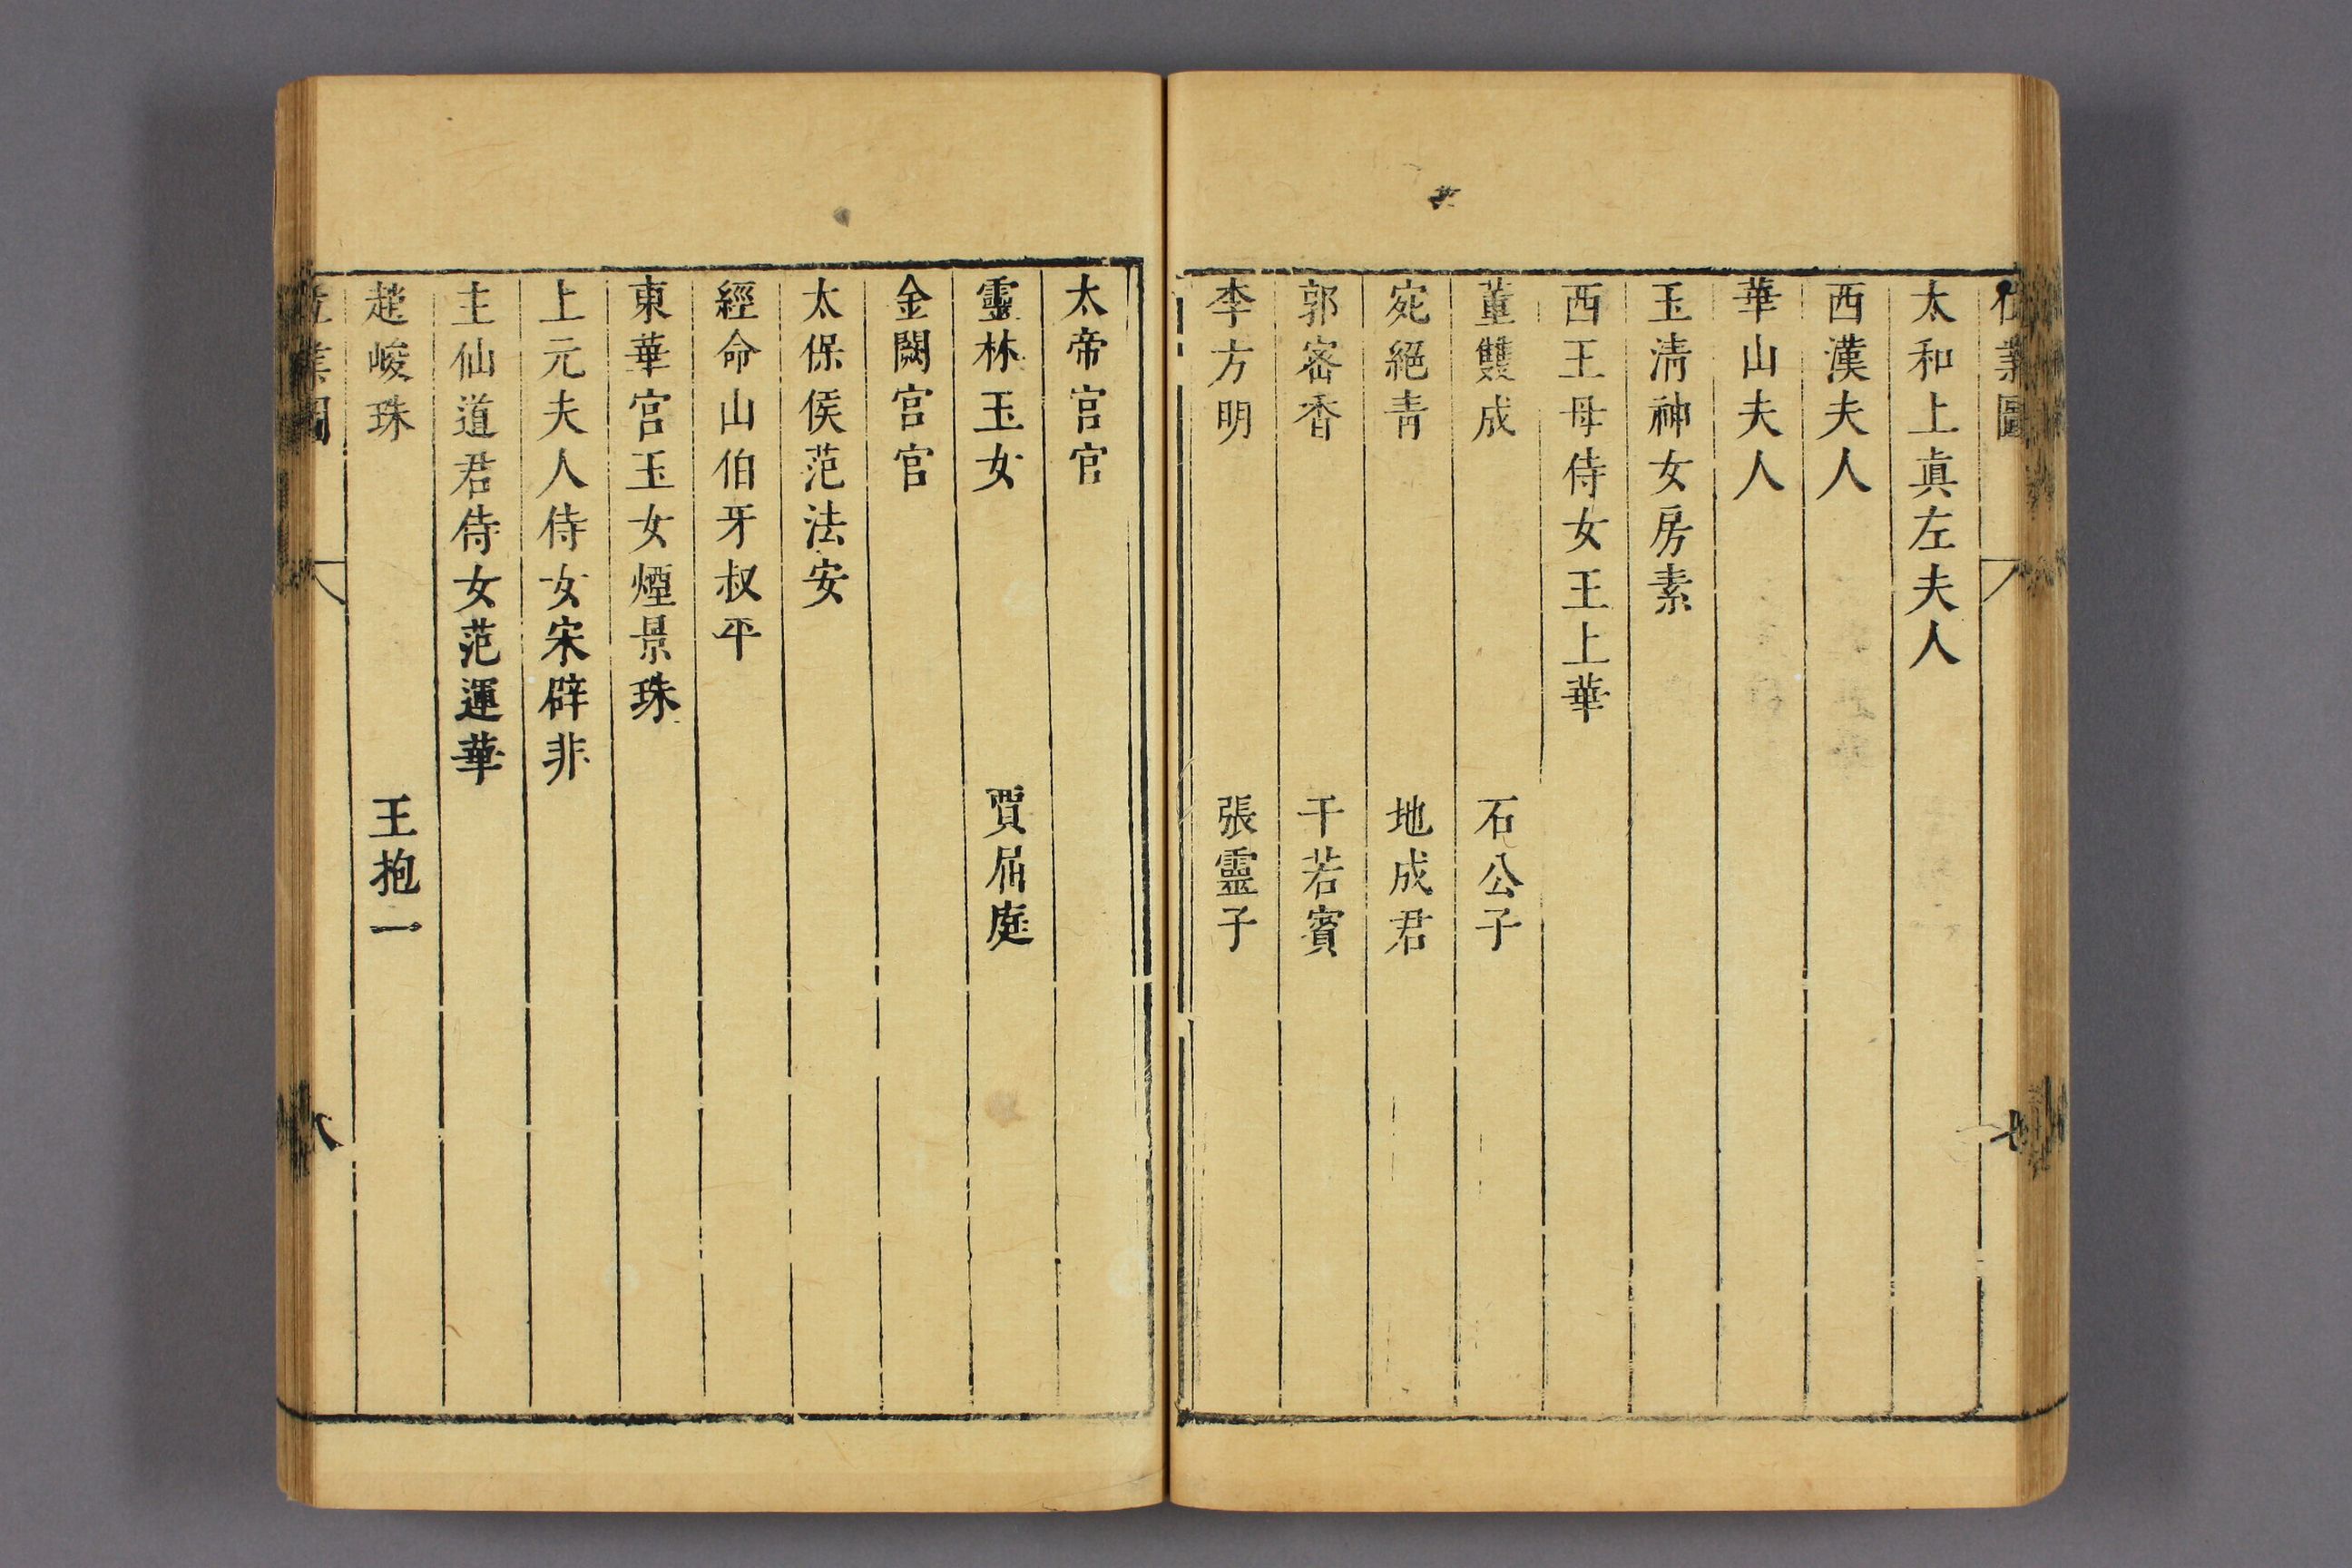 太和上眞左夫人
西漢夫人
華山夫人
玉淸神女房素
西王母侍女王上華
董雙成 石公子
宛絕青 地成君
郭密香 干若賓
李方明 張靈子
七
太帝官官
靈林玉女 賈屈庭
金闕宮官
太保侯范法安
經命山伯牙叔平
東華宮玉女煙景珠
上元夫人侍女宋辟非
主仙道君侍女范運華
趙峻珠 王抱一
業圖
八